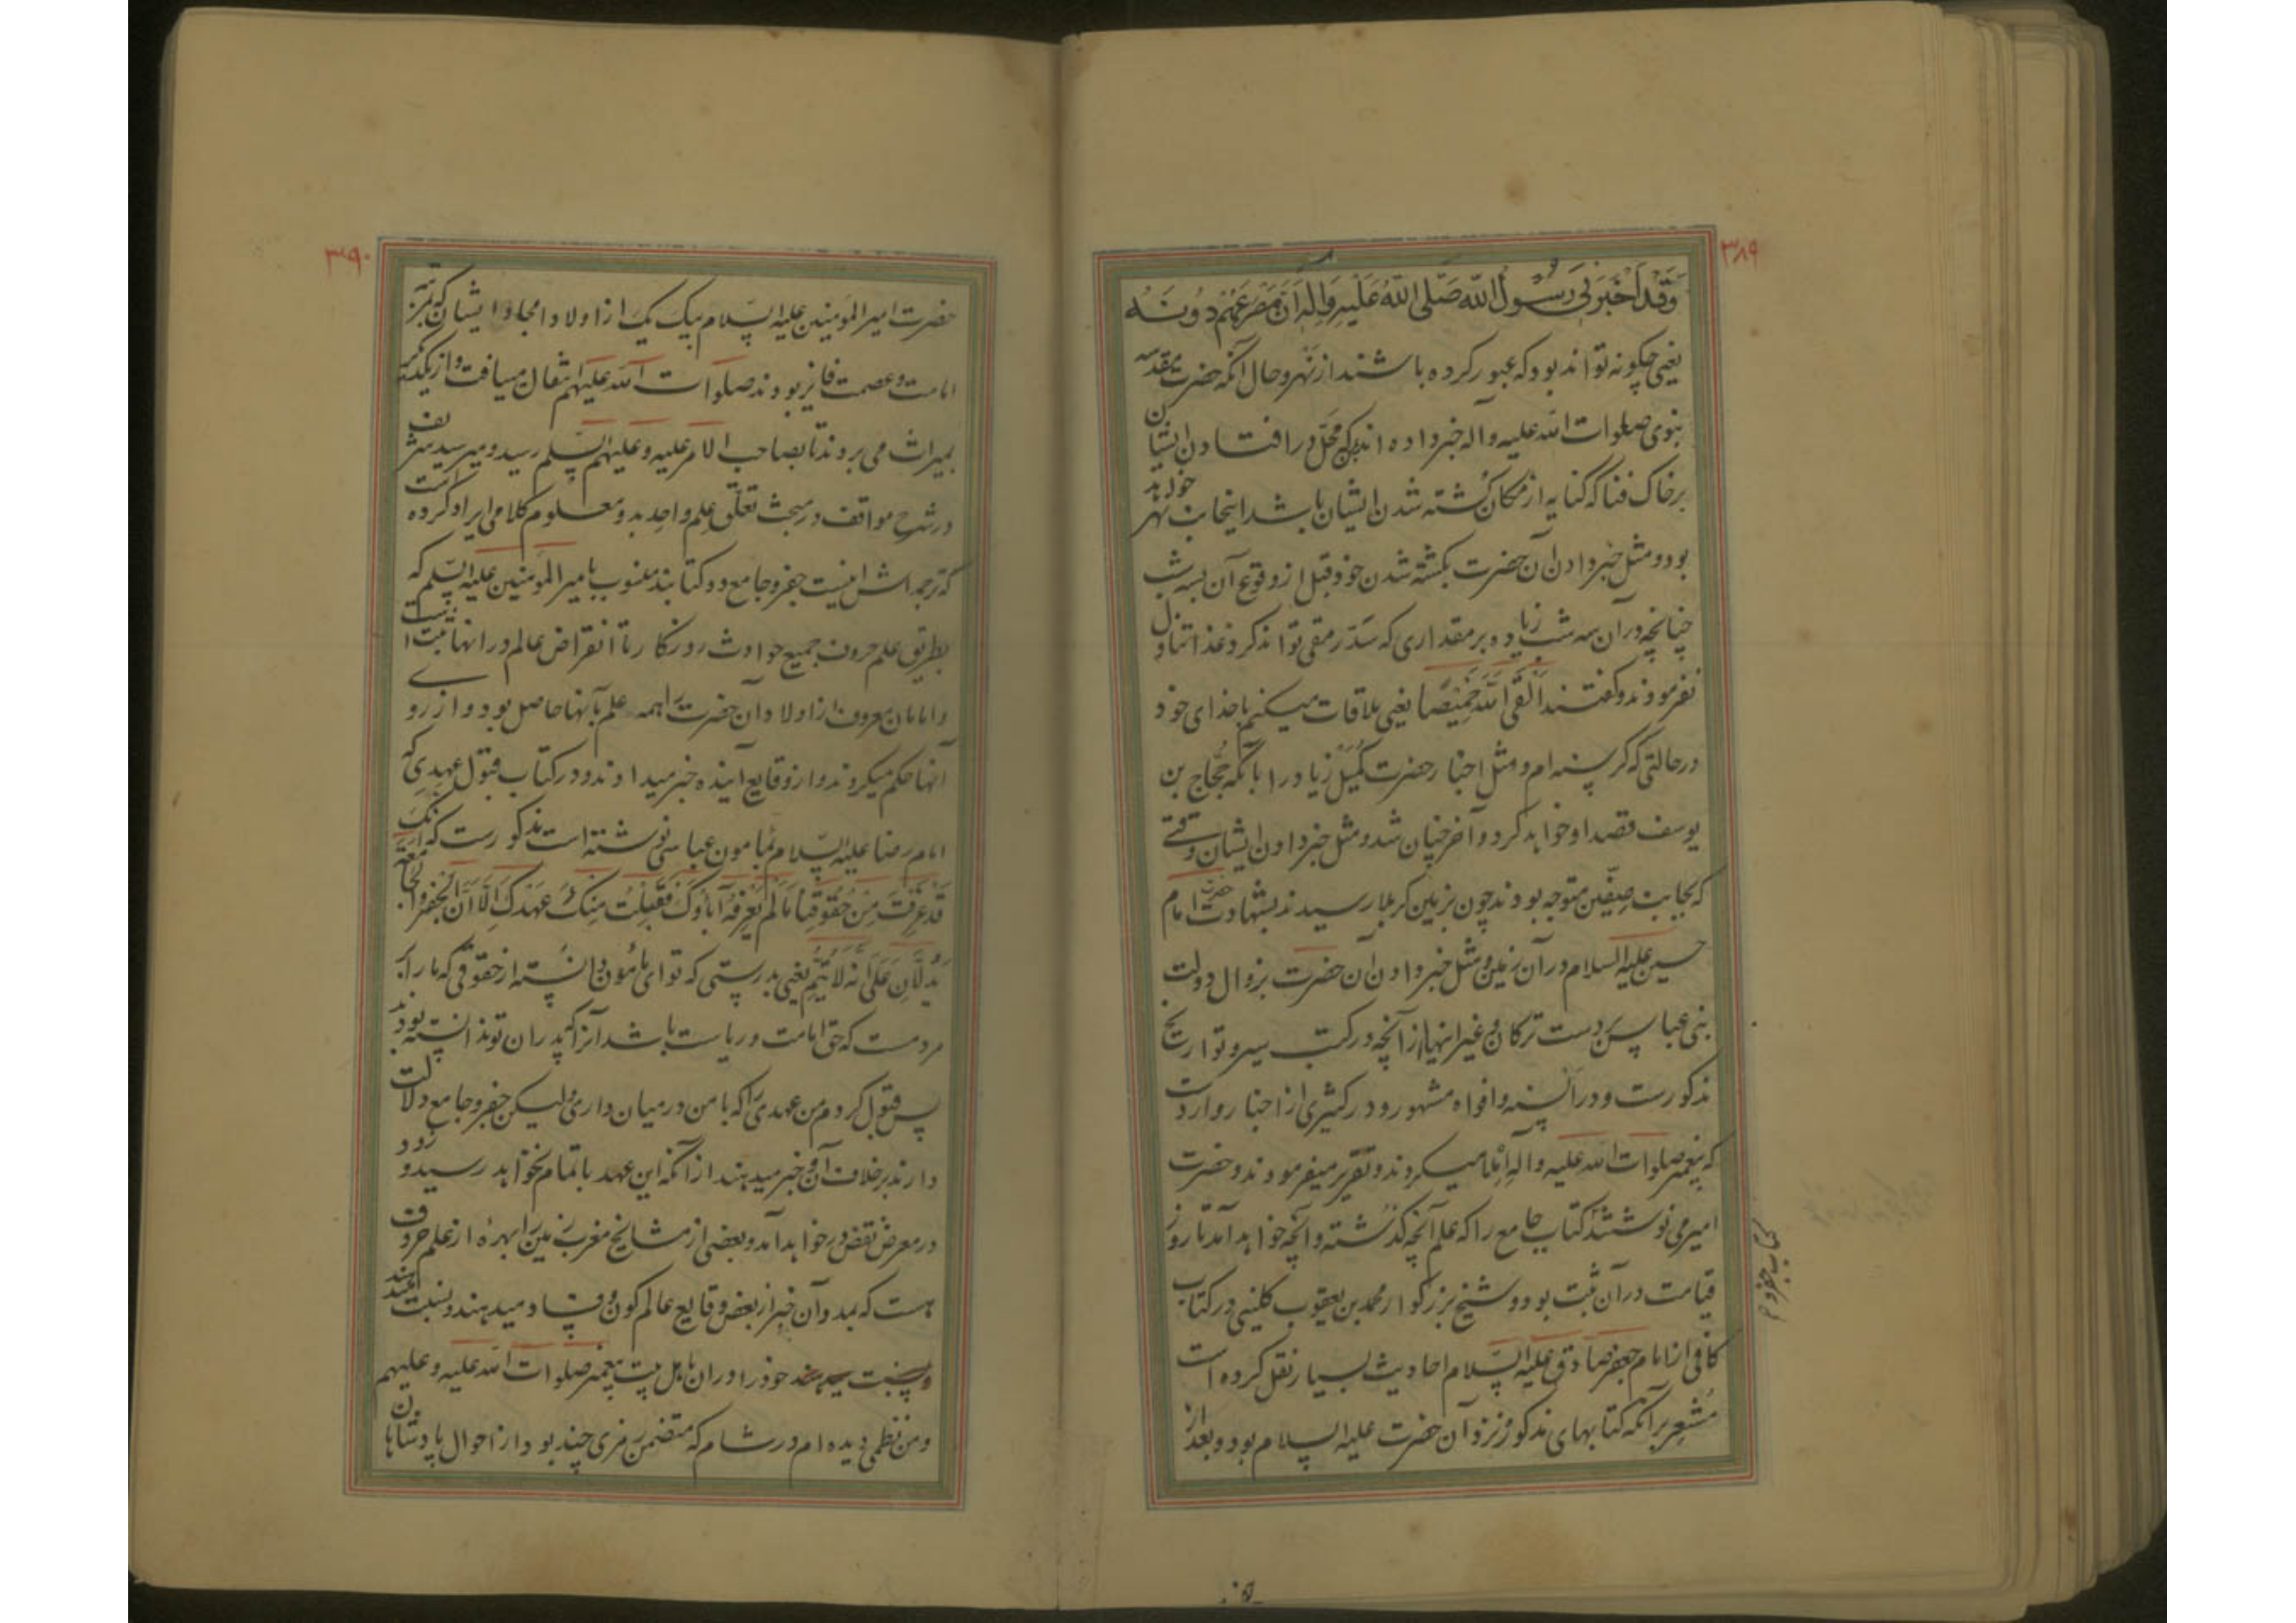 ۳۸۹
وَقَد اَخْبَرَنی رَسُولُ اللّه صَلَّی اللّهُ عَلَیْهِ وَآلِه اَنَّ مَصْرَعَهُمْ دُونَهُ
یعنی چگونه تواند بود که عبور کرده باشند از نهر و حال آنکه حضرت مقدسه
نبوی صلوات الله علیه و آله خبر داده اند که محل در افتادن ایشان
بر خاک فنا که کنایه از مکان کشته شدن ایشان باشد اینجانب نهر خواهد
بود و مثل خبر دادن آن حضرت بکشته شدن خود قبل از وقوع آن بسه شب
چنانچه در آن سه شب زیاده بر مقداری که سدّ رمقی تواند کرد غذا تناول
نفرمودند و گفتند اَلْقَی اللّهَ خَمِیْصًا یعنی ملاقات میکنم با خدای خود
در حالتی که گرسنه ام و مثل اخبار حضرت کمیل زیاد را بآنکه حجّاج بن
یوسف قصد او خواهد کرد و آخر چنان شد و مثل خبر دادن ایشان وقتے
که بجانب صفّین متوجه بودند چون بزمین کربلا رسیدند بشهادت حضرت امام
حسین علیه السلام در آن زمین و مثل خبر دادن آن حضرت بزوال دولت
بنی عباس بر دست ترکان و غیر اینها از آنچه در کتب سیر و تواریخ
مذکورست و در السنه و افواه مشهور و در کثیری از اخبار واردست
که پیغمبر صلوات الله علیه و آله املا میکردند و تقریر میفرمودند و حضرت
امیر می نوشتند کتاب جامع را که علم آنچه گذشته و آنچه خواهد آمد تا روز
قیامت در آن ثبت بود و شیخ بزرگوار محمد بن یعقوب کلینی در کتاب
کافی از امام جعفر صادق علیه السّلام احادیث بسیار نقل کرده است
مُشعِر بر آنکه کتابهای مذکور نزد آن حضرت علیه السلام بود و بعد از
۳۹۰
حضرت امیر المؤمنین علیه السّلام بیک یک از اولاد امجاد ایشان که
امامت و عصمت فایز بودند صلوات الله علیهم انتقال مییافت و از یکدیگر
بمیراث می بردند تا بصاحب الامر علیه و علیهم السّلم رسید و میر سید شریف
در شرح مواقف در مبحث تعلّق علم واحد بدو معلوم کلامی ایراد کرده است
که ترجمه اش اینست جفر و جامع دو کتابند منسوب بامیر المؤمنین علیه السّلم که
بطریق علم حروف جمیع حوادث روزگار تا انقراض عالم در آنها ثبت است
و امامان معروف از اولاد آن حضرت را همه علم بآنها حاصل بود و از روے
آنها حکم میکردند و از وقایع آینده خبر میدادند و در کتاب قبول عهدی که
امام رضا علیه السّلام بمأمون عباسی نوشته است مذکورست که اِنّک
قَدْ عَرَفْتَ مِنْ حُقُوقِنا مَا لَمْ یَعْرِفْهُ آبَاؤکَ فَقَبِلْتُ مِنْکَ عَهْدَکَ اِلّا اَنَّ الْجَفْرَ وَالْجَامِعَةَ
یَدُلّانِ عَلَی اَنَّهُ لَا یَتِمُّ یعنی بدرستی که تو ای مأمون دانسته از حقوقی که ما را بر
مردمست که حق امامت و ریاست باشد آنرا که پدران تو ندانسته بودند
پس قبول کردم من عهدی را که با من در میان داری ولیکن جفر و جامع دلالت
دارند بر خلاف آن و خبر میدهند از آنکه این عهد باتمام نخواهد رسید و زود
در معرض نقض در خواهد آمد و بعضی از مشایخ مغرب زمین را بهرۀ از علم حروف
هست که بمدد آن خبر از بعض وقایع عالم کون و فساد میدهند و نسبت میدهند
خود را در آن باهل بیت پیغمبر صلوات الله علیه و علیهم
و من نظمی دیده ام در شام که متضمن رمزی چند بود از احوال پادشاهان